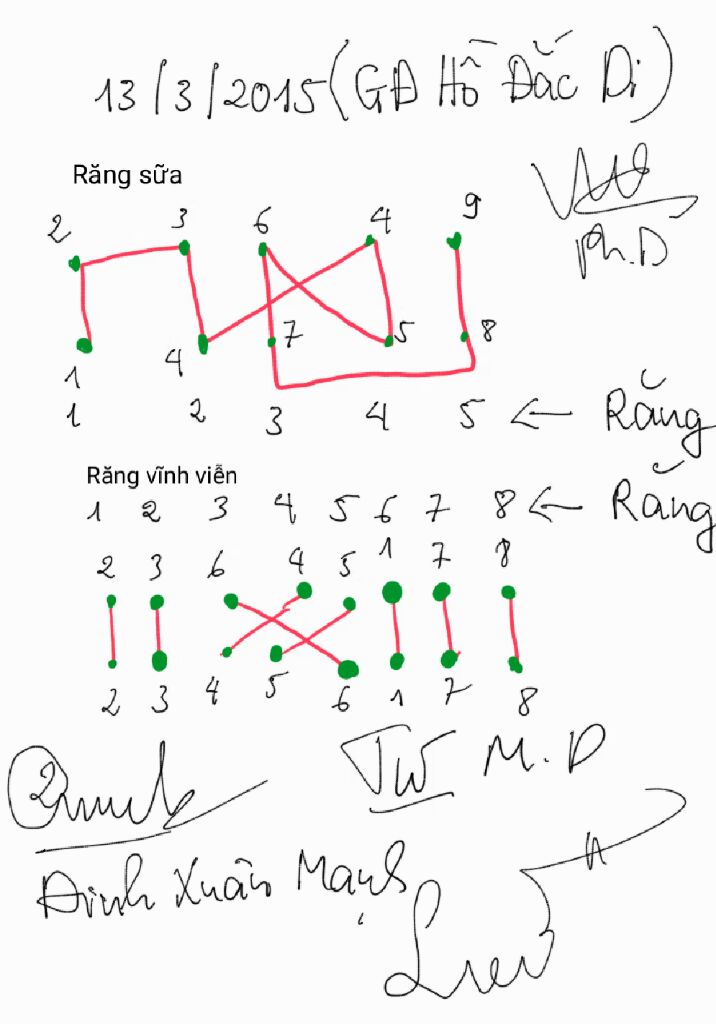 13/3/2015 (GĐ Hồ Đắc Di)
Răng sữa
Ph.D
2 3 6 4 9
1 4 7 5 8
1 2 3 4 5 ← Răng
Răng vĩnh viễn
1 2 3 4 5 6 7 8 ← Răng
2 3 6 4 5 1 7 8
2 3 4 5 6 1 7 8
M.D
Đinh Xuân Mạnh